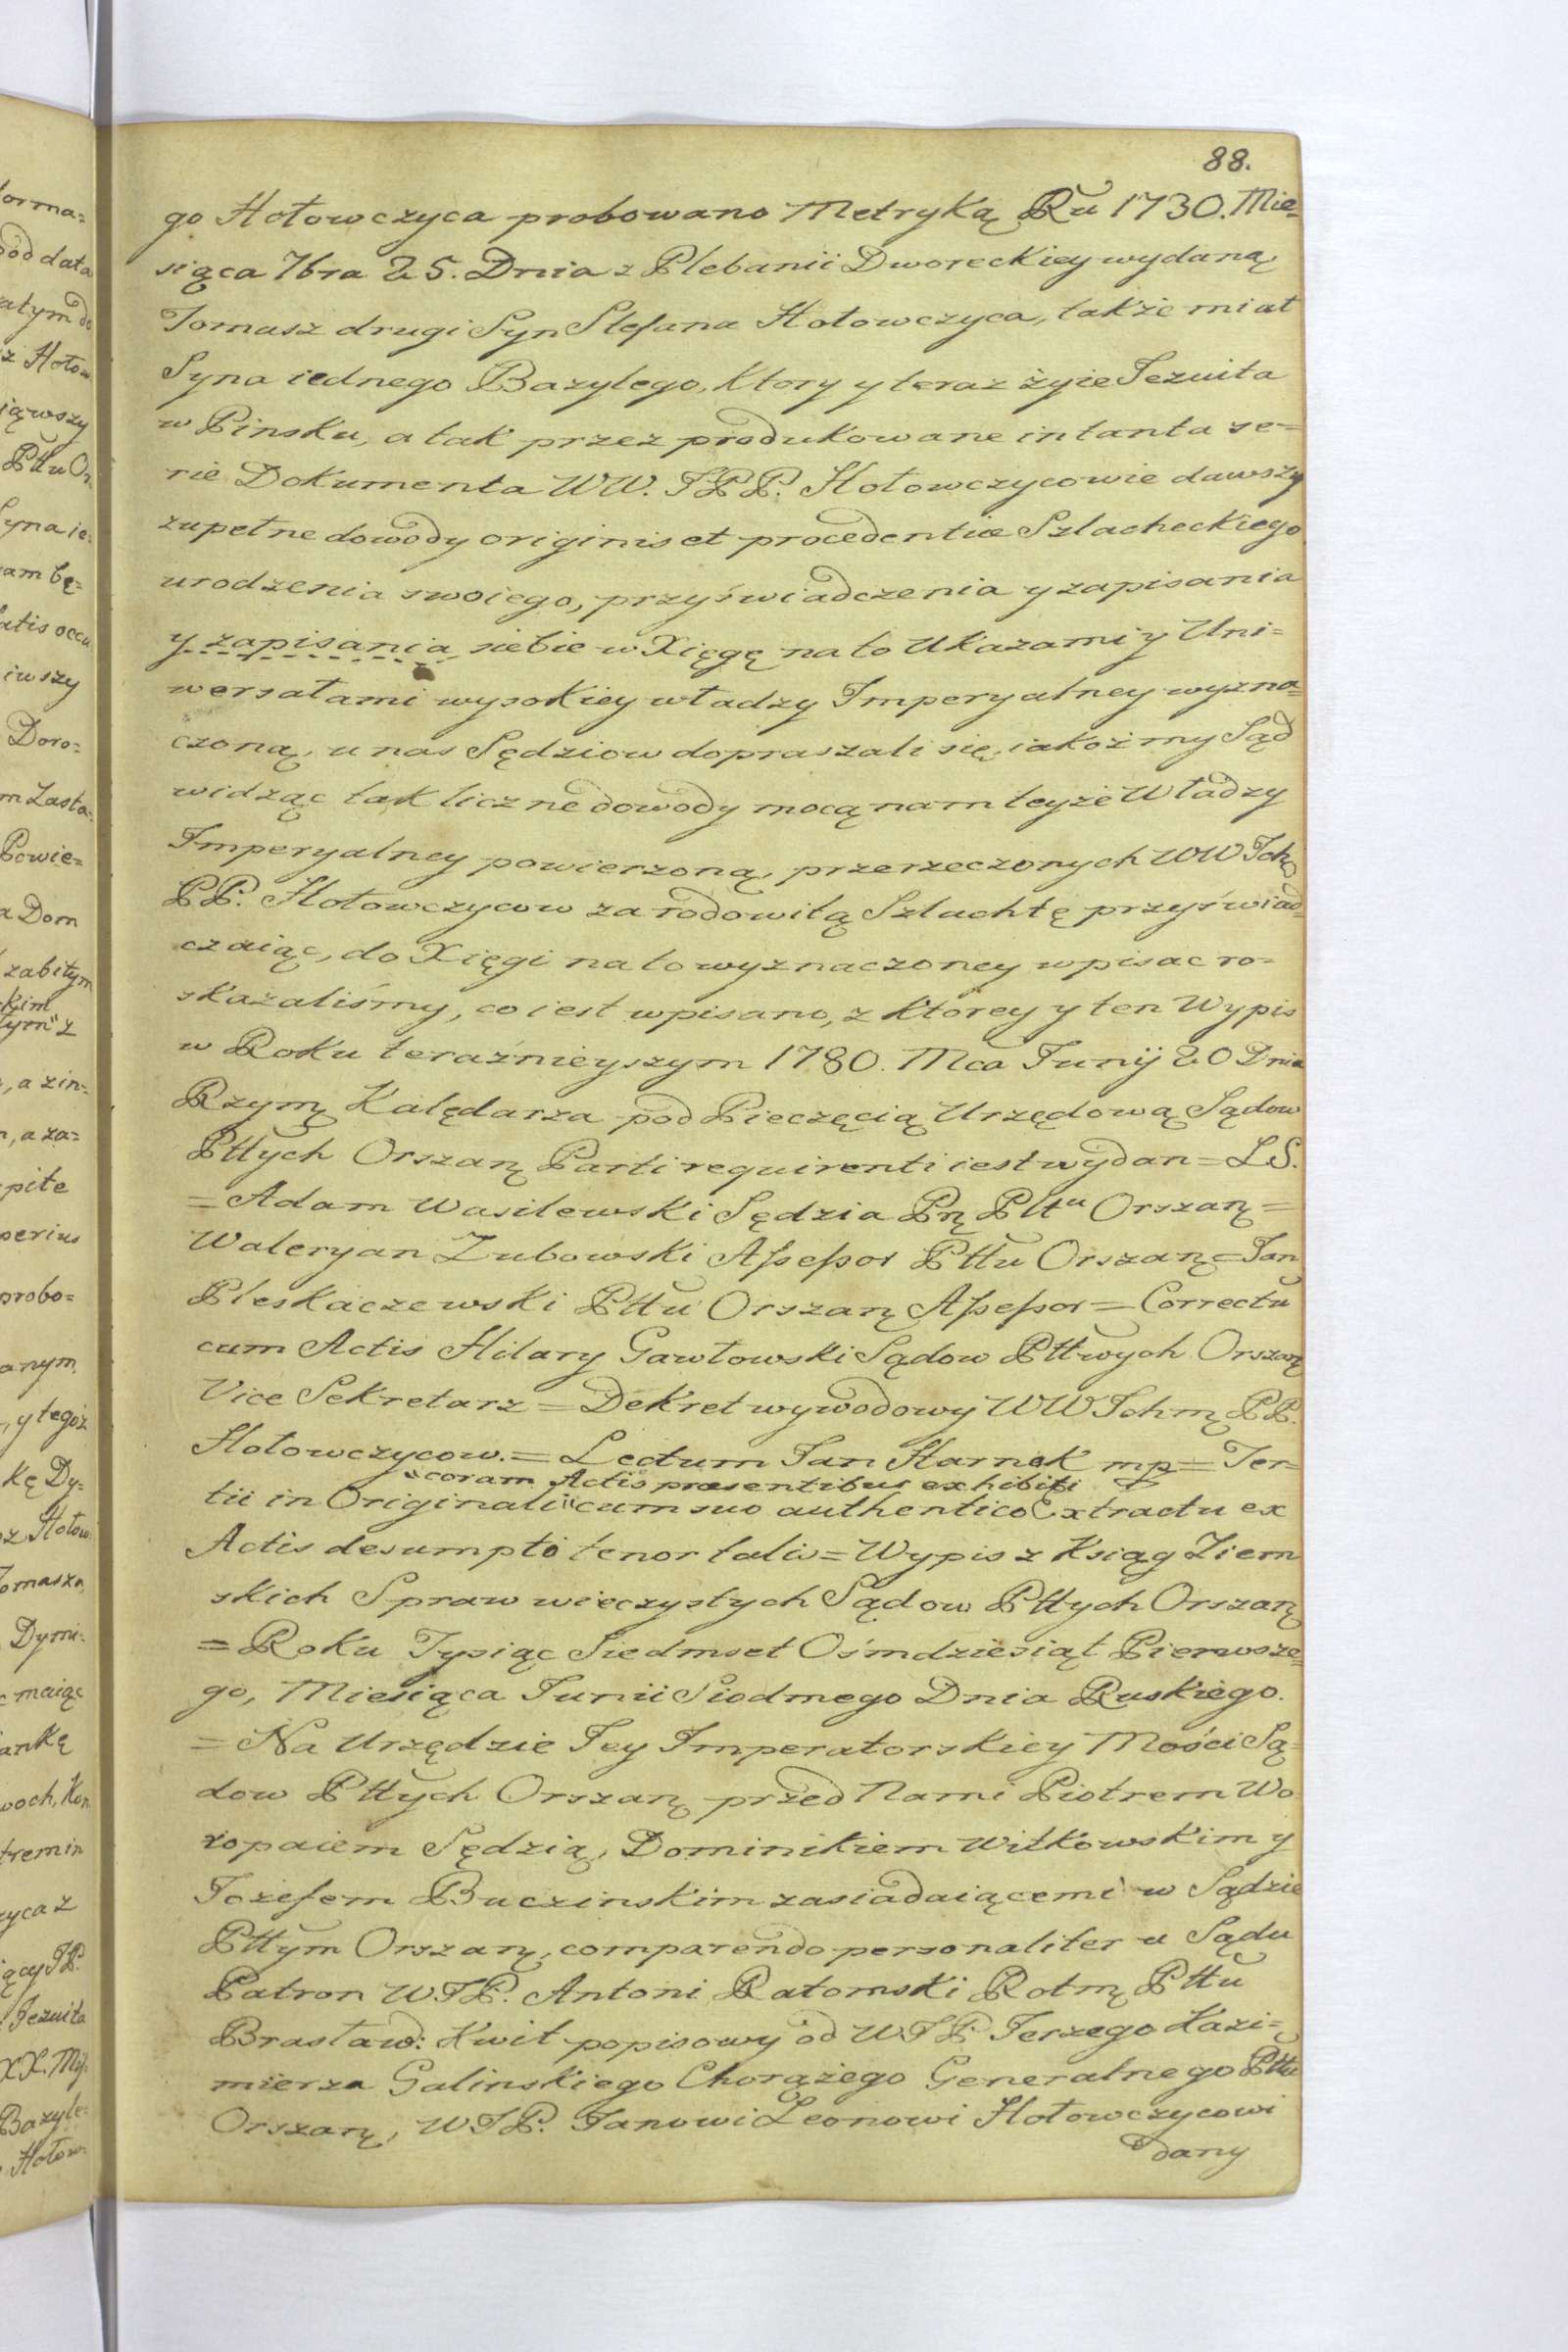 88.
go Hołowczyca probowano Metryką Ru 1730. Mie=
siąca 7bra 25. Dnia z Plebanii Dworeckiey wydaną,
Tomasz drugi Syn Stefana Hołowczyca, także miał
Syna iednego Bazylego, ktory y teraz żyie Jezuita
w Pinsku, a tak przez produkowane in tanta se=
rie Dokumenta WW. JPP. Hołowczycowie dawszy
zupełne dowody originis et procedentiæ Szlacheckiego
urodzenia swoiego, przyświadczenia y zapisania
y zapisania siebie w Xięgę na to Ukazami y Uni=
wersałami wysokiey władzy Imperyalney wyzna=
czoną, u nas Sędziow dopraszali się, iakoż my Sąd
widząc tak liczne dowody mocą nam teyże Władzy
Imperyalney powierzoną, przerzeczonych WW Ich
PP. Hołowczycow za rodowitą Szlachtę przyświad=
czaiąc, do Xięgi na to wyznaczoney wpisac ro=
skazaliśmy, co iest wpisano, z ktorey y ten Wypis
w Roku teraźnieyszym 1780. Mca Junij 20 Dnia
Rzymͅ Kalędarza pod Pieczęcią Urzędową Sądow
Pttych Orszanͅ Parti requirenti iest wydan = LS.
= Adam Wasilewski Sędzia Pnͅ Pttu Orszanͅ =
Waleryan Zubowski Assessor Pttu Orszanͅ = Jan
Pleskaczewski Pttu Orszanͅ Assessor = Correctu
cum Actis Hilary Gawłowski Sądow Pttwych Orszanͅ
Vice Sekretarz = Dekret wywodowy WW Ichmͅ PP.
Hołowczycow. = Lectum Jan Harnak mp = Ter=
"coram Actis præsentibus exhibiti
tii in Originali "cum suo authentico Extractu ex
Actis desumpto tenor talis = Wypis z Ksiąg Ziem
skich Spraw wieczystych Sądow Pttych Orszanͅ
= Roku Tysiąc Siedmset Ośmdziesiąt Pierwsze=
go, Miesiąca Junii Siodmego Dnia Ruskiego.
= Na Urzędzie Jey Imperatorskiey Mości Są=
dow Pttych Orszanͅ przed Nami Piotrem Wo
łopaiem Sędzią, Dominikiem Witkowskim y
Jozefem Buczinskim zasiadaiącemi w Sądzie
Pttym Orszanͅ, comparendo personaliter u Sądu
Patron WJP. Antoni Ratomski Rotmͅ Pttu
Brasław: Kwit popisowy od WJP Jerzego Kazi=
mierza Galinskiego Chorążego Generalnego Pttu
Orszanͅ, WJP. Janowi Leonowi Hołowczycowi
dany